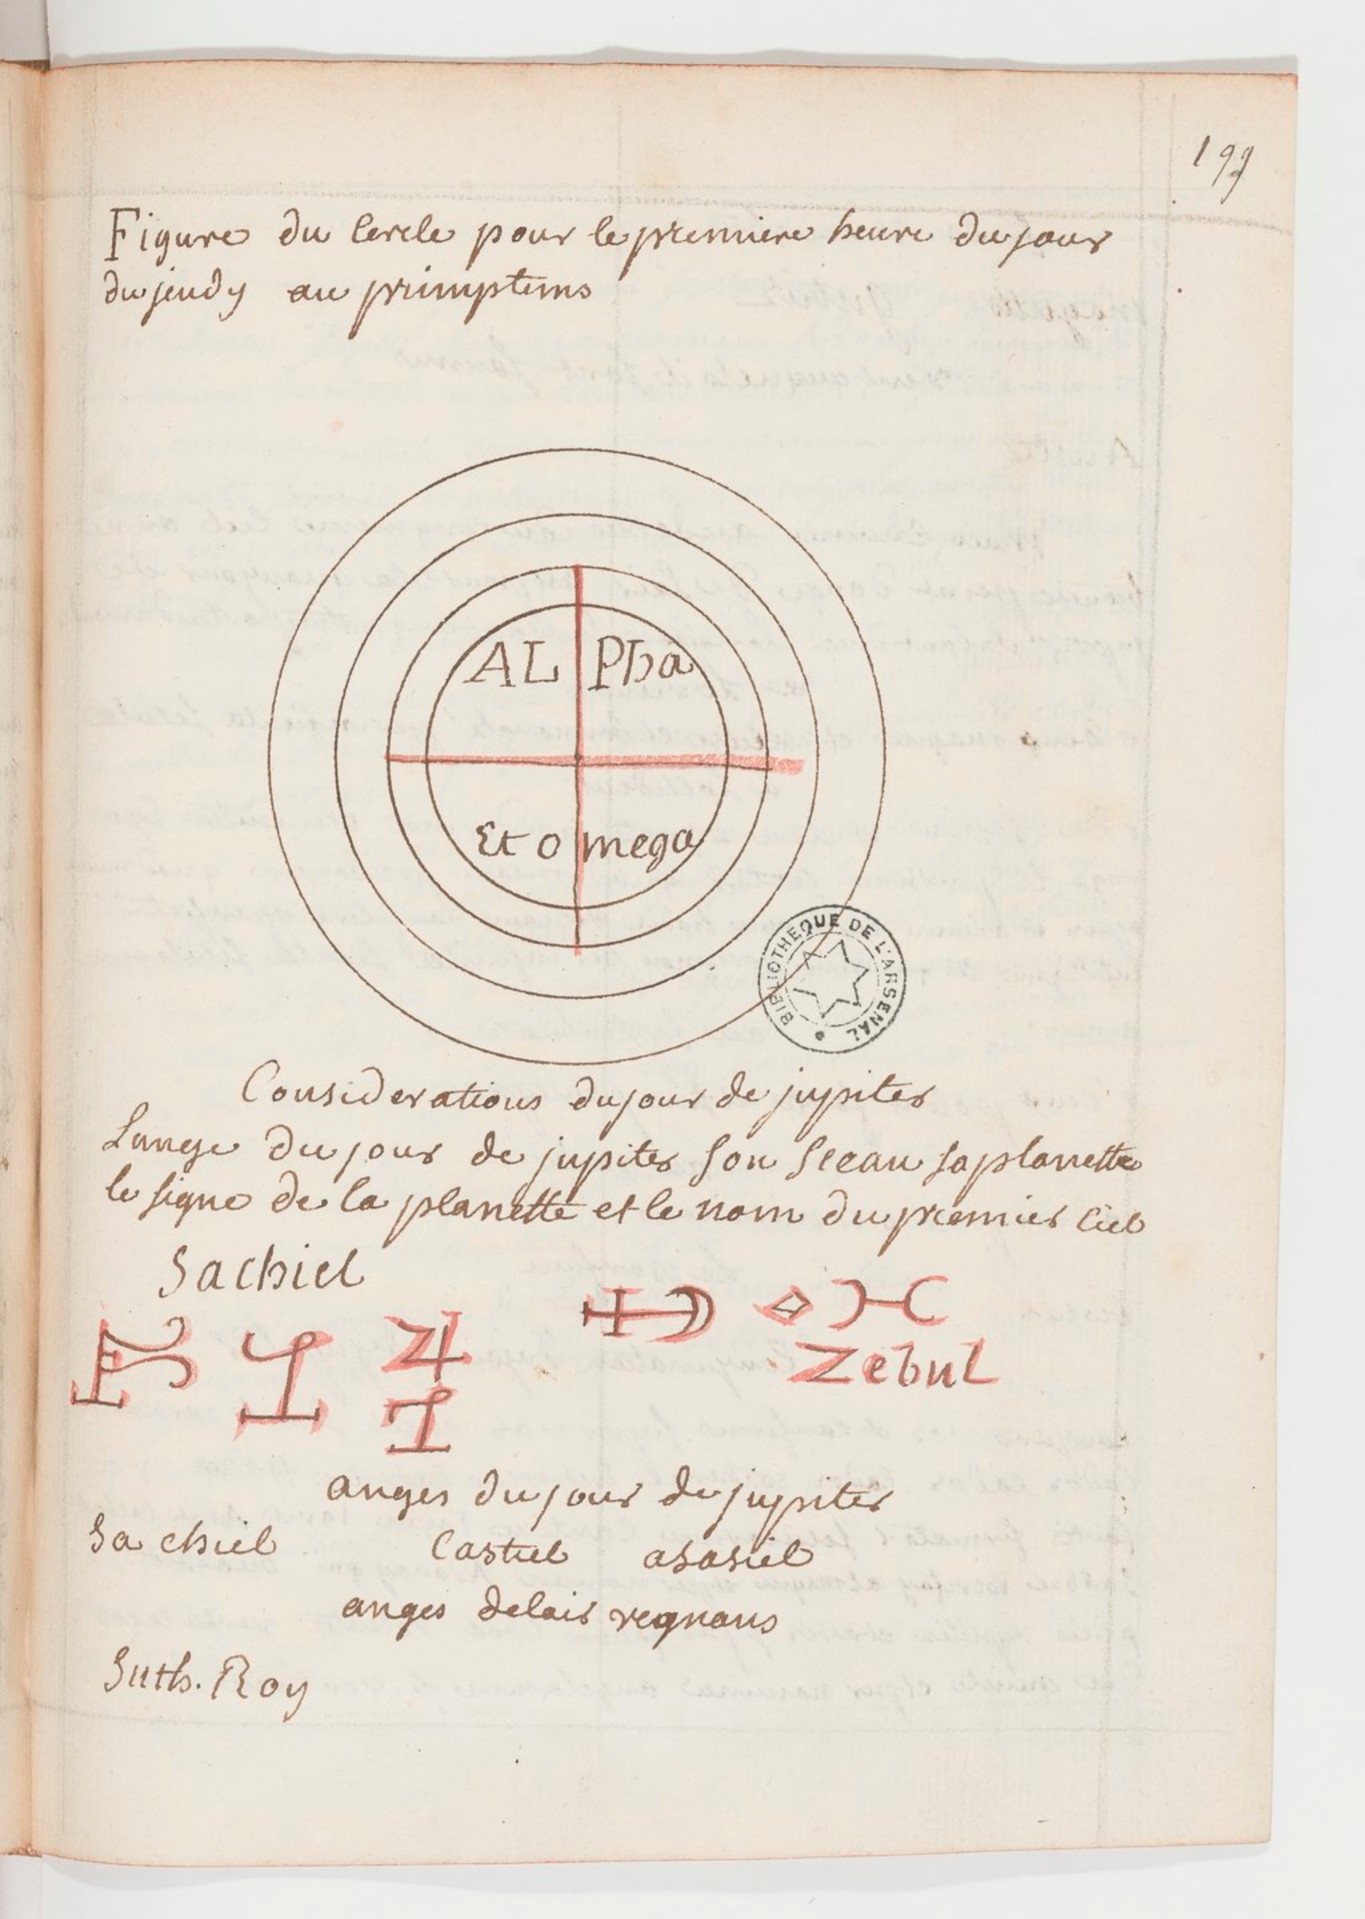 199
Figure du Cercle pour le premiere heure du jour
du jeudy au primptems
AL Pha
Et omega
BIBLIOTHEQUE DE L'ARSENAL
Considerations du jour de jupiter
Lange du jour de jupiter son sceau sa planette
le signe de la planette et le nom du premier ciel
Sachiel
Zebul
anges du jour de jupiter
Sachiel Castiel asasiel
anges delair regnans
Suth. Roy